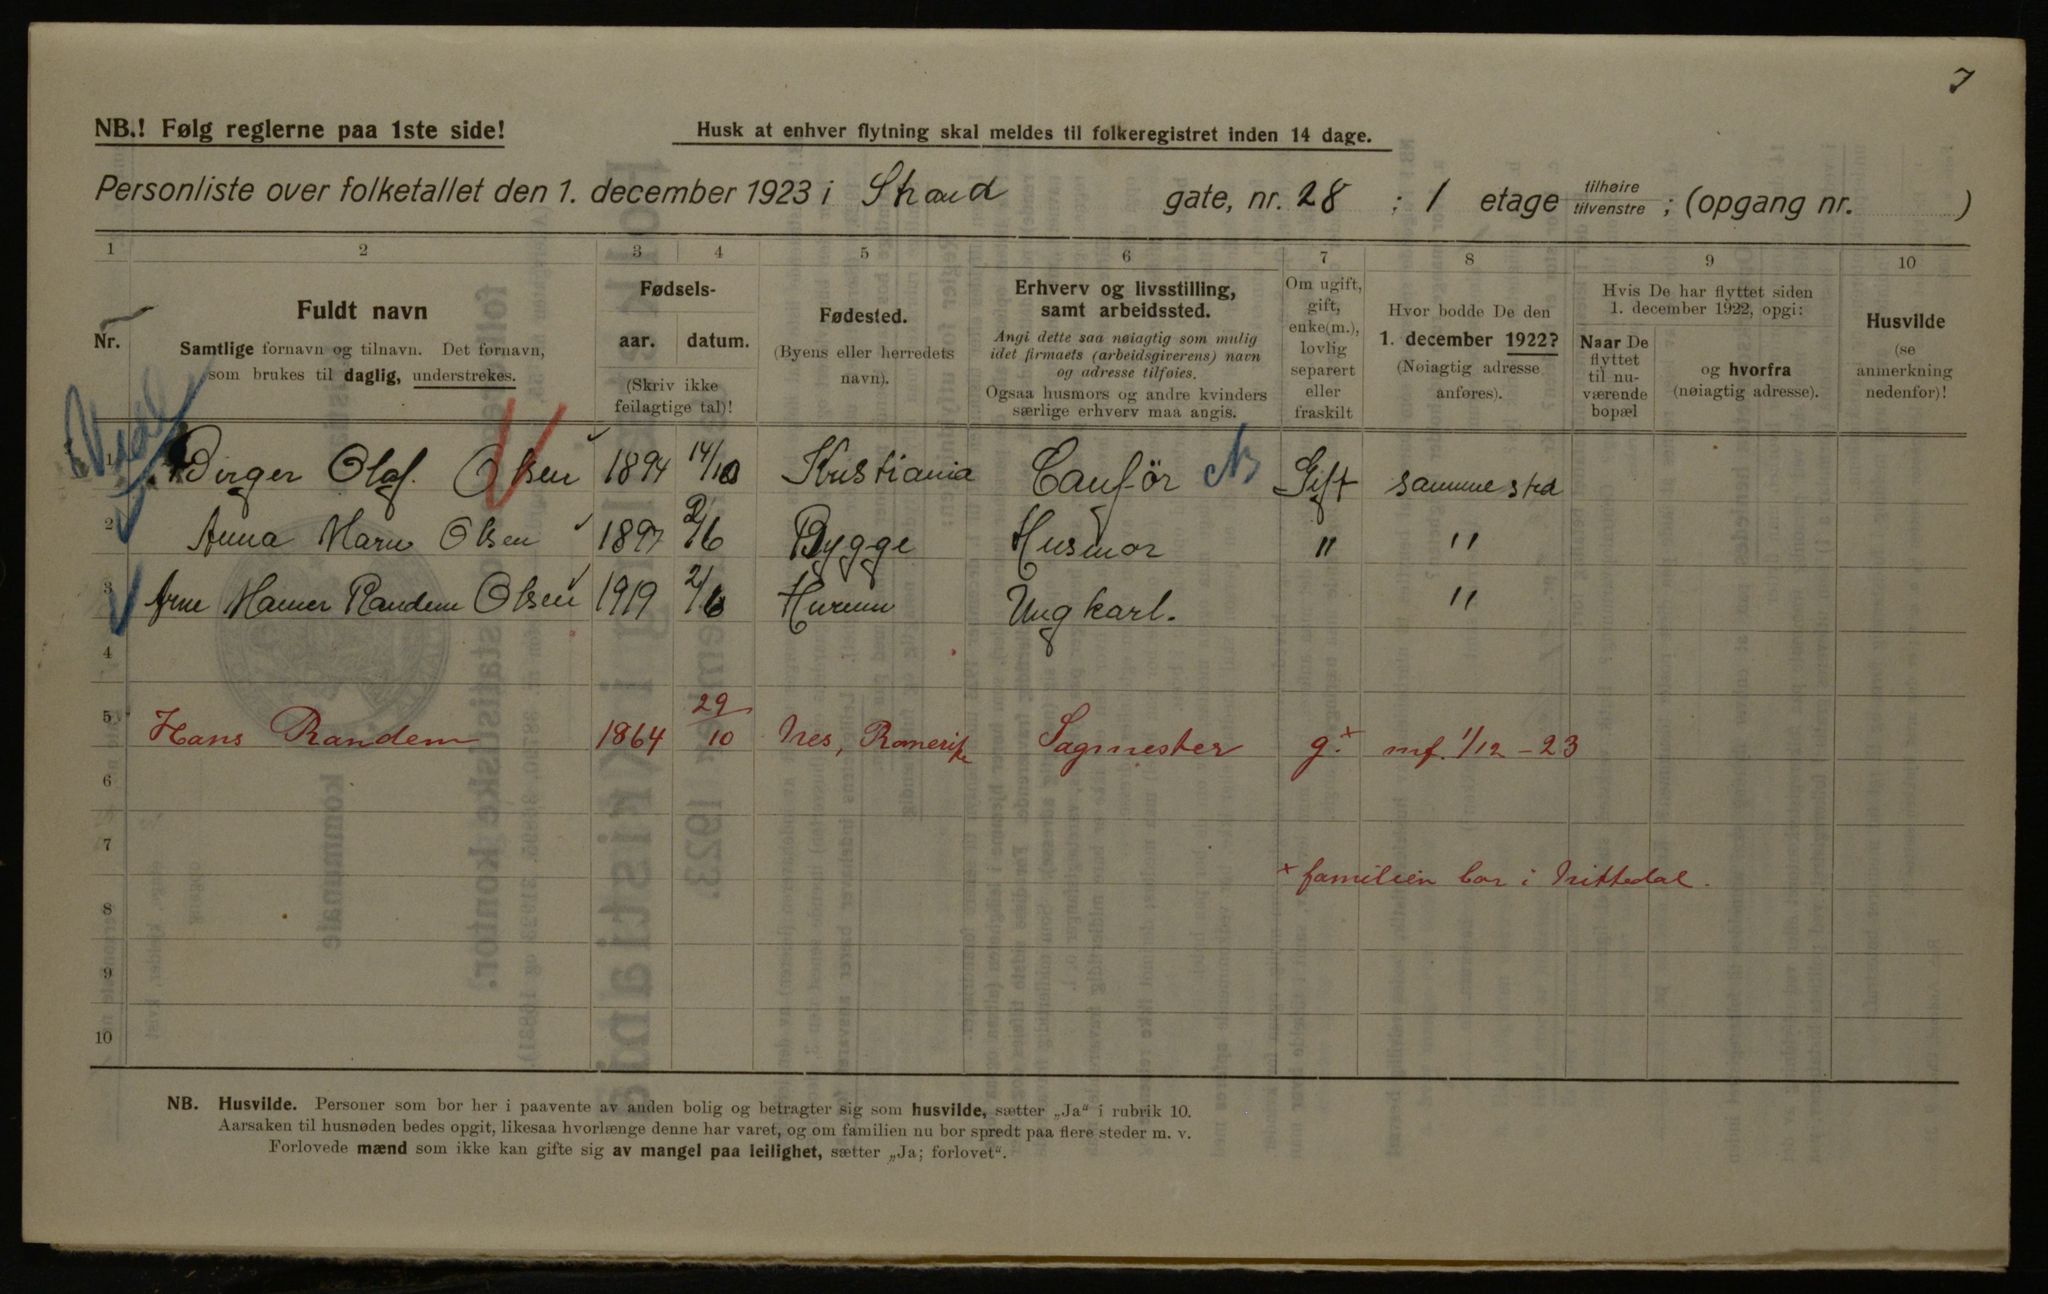 7
NB.! Følg reglerne paa 1ste side!
Husk at enhver flytning skal meldes til folkeregistret inden 14 dage.
Personliste over folketallet den 1. december 1923 i Strand gate, nr. 28 ; 1 etage tilhøire tilvenstre ; (opgang nr. )
1 2 3 4 5 6 7 8 9 10
Nr.
Fuldt navn
Samtlige fornavn og tilnavn. Det fornavn,
som brukes til daglig, understrekes.
Fødsels-
aar. datum.
(Skriv ikke
feilagtige tal)!
Fødested.
(Byens eller herredets
navn).
Erhverv og livsstilling,
samt arbeidssted.
Angi dette saa nøiagtig som mulig
idet firmaets (arbeidsgiverens) navn
og adresse tilføies.
Ogsaa husmors og andre kvinders
særlige erhverv maa angis.
Om ugift,
gift,
enke(m.),
lovlig
separert
eller
fraskilt
Hvor bodde De den
1. december 1922?
(Nøiagtig adresse
anføres).
Hvis De har flyttet siden
1. december 1922, opgi:
Naar De
flyttet
til nu-
værende
bopæl
og hvorfra
(nøiagtig adresse).
Husvilde
(se
anmerkning
nedenfor)!
1 Birger Olaf. Olsen 1894 14/10 Kristiania Caufør Gift samme sted
2 Anna Marie Olsen 1897 2/6 Bygge Husmor " "
3 Arne Randem Olsen 1919 2/6 Hurum Ung karl. "
4
5 Hans Randem 1864 29/10 Nes, Romerike Sagmester g.x mf. 1/12-23
6
7
x familien bor i Nittedal.
8
9
10
NB. Husvilde. Personer som bor her i paavente av anden bolig og betragter sig som husvilde, sætter „Ja“ i rubrik 10.
Aarsaken til husnøden bedes opgit, likesaa hvorlænge denne har varet, og om familien nu bor spredt paa flere steder m. v.
Forlovede mænd som ikke kan gifte sig av mangel paa leilighet, sætter „Ja; forlovet“.